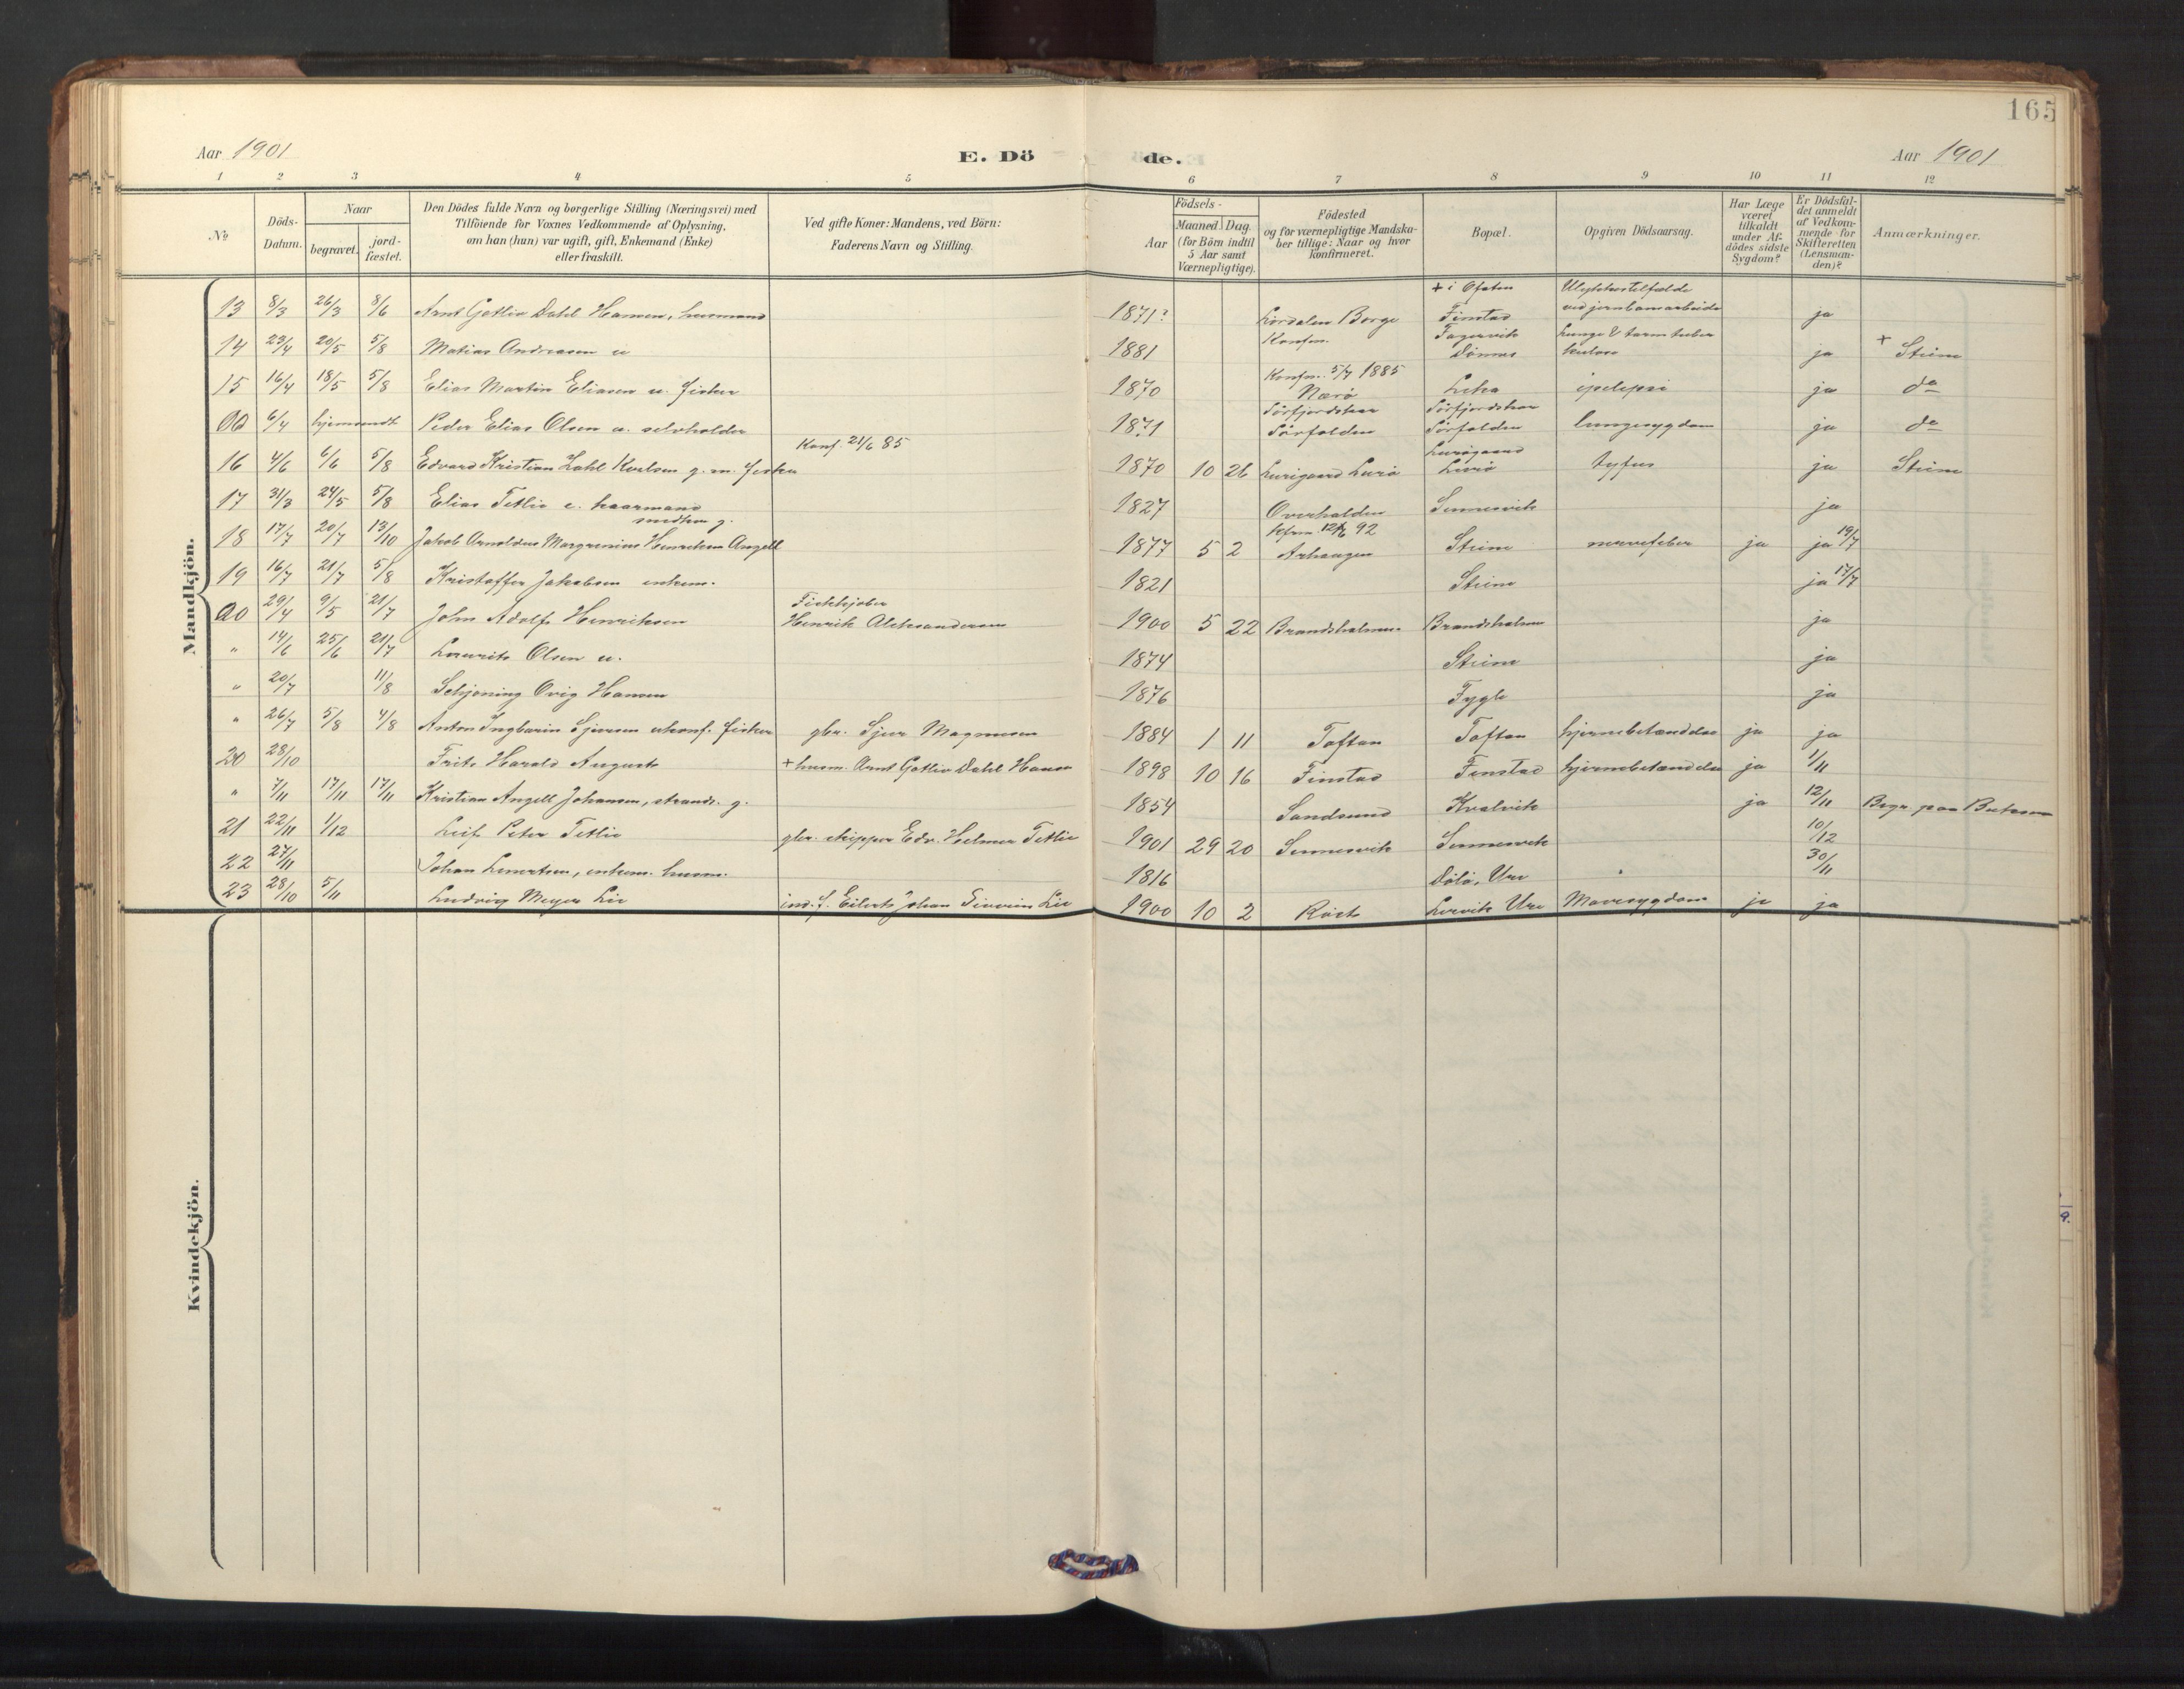 165
Aar 1901
E. Dö
de.
Aar 1901
1 2 3 4 5 6 7 8 9 10 11 12
No
Döds-Datum.
Naar
begravet.
jord-fæstet.
Den Dödes fulde Navn og borgerlige Stilling (Næringsvei) med
Tilföiende for Voxnes Vedkommende af Oplysning,
om han (hun) var ugift, gift, Enkemand (Enke)
eller fraskilt.
Ved gifte Koner: Mandens, ved Börn:
Faderens Navn og Stilling.
Födsels-
Aar
Maaned. Dag.
(for Börn indtil
5 Aar samt
Værnepligtige).
Födested
og for værnepligtige Mandska-
ber tillige: Naar og hvor
konfirmeret.
Bopæl.
Opgiven Dödsaarsag.
Har Læge
været
tilkaldt
under Af-
dödes sidste
Sygdom?
Er Dödsfal-
det anmeldt
af Vedkom-
mende for
Skifteretten
(Lensman-
den)?
Anmærkninger.
Mandkjön.
+ i Ofoten Ulykkestilfælde
13 8/3 26/3 8/6 Arnt Gotliv Dahl Hansen, husmand 1871? Lirdalen Borge Finstad ved jernbanearbeide ja
Konfm. Fagervik Lunge & tarm tuber
14 23/4 20/5 5/8 Matias Andreasen u 1881 Dönnes kulose ja + Stene
Konfm. 5/7 1885
15 16/4 18/5 5/8 Elias Martin Eliasen u. fisker 1870 Nærö Leka epelepsi ja do
Sörfjordshor Sörfjordshor
00 6/4 hjemsendt Peder Elias Olsen u. selvholder 1871 Sörfolden Sörfolden lungesygdom ja do
Konf. 21/6 85 Lurögaard
16 4/6 6/6 5/8 Edvard Kristian Zahl Karlsen g. m. fisker 1870 10 26 Lurögaard Lurö Lurö tyfus ja Stene
17 31/3 24/5 5/8 Elias Tetlie e. kaarmand 1827 Overhalden Sennesvik ja
smedken g. kfrm. 12/6 92
18 17/7 20/7 13/10 Jakob Arnoldus Margrenius Henriksen Angell 1877 5 2 Arhaugen Stene nervefeber ja ja 19/7
19 16/7 21/7 5/8 Kristoffer Jakobsen enkem. 1821 Stene ja 17/7
Fiskkjöber
20 29/4 9/5 21/7 John Adolf Henriksen Henrik Aleksandersen 1900 5 22 Brandsholmen Brandsholmen ja
" 14/6 25/6 21/7 Laurits Olsen u. 1874 Stene ja
" 20/7 11/8 Schjöning Ovig Hansen 1876 Fygle ja
" 26/7 5/8 4/8 Anton Ingbarin Sjursen ukonf. fisker gbr. Sjur Magnusen 1884 1 11 Toften Toften hjernebetændelse ja ja
20 28/10 Frits Harald August + husm. Arnt Gotliv Dahl Hansen 1898 10 16 Finstad Finstad hjernebetændelse ja 1/11
" 7/11 17/11 17/11 Kristian Angell Johansen, strands. g. 1854 Sandsund Kvalvik ja 12/11 Begr. paa Buksnes
21 22/11 1/12 Leif Peter Tetlie gbr. skipper Edv. Helmer Tetlie 1901 29 20 Sennesvik Sennesvik 10/12
22 27/11 Johan Lenertsen, enkem. husm. 1816 Ure 30/11
23 28/10 5/11 Ludvig Meyer Lie ind. f. Eilert Johan Severin Lie 1900 10 2 Röst Lervik Ure Mavesygdom ja ja
Kvindekjön.